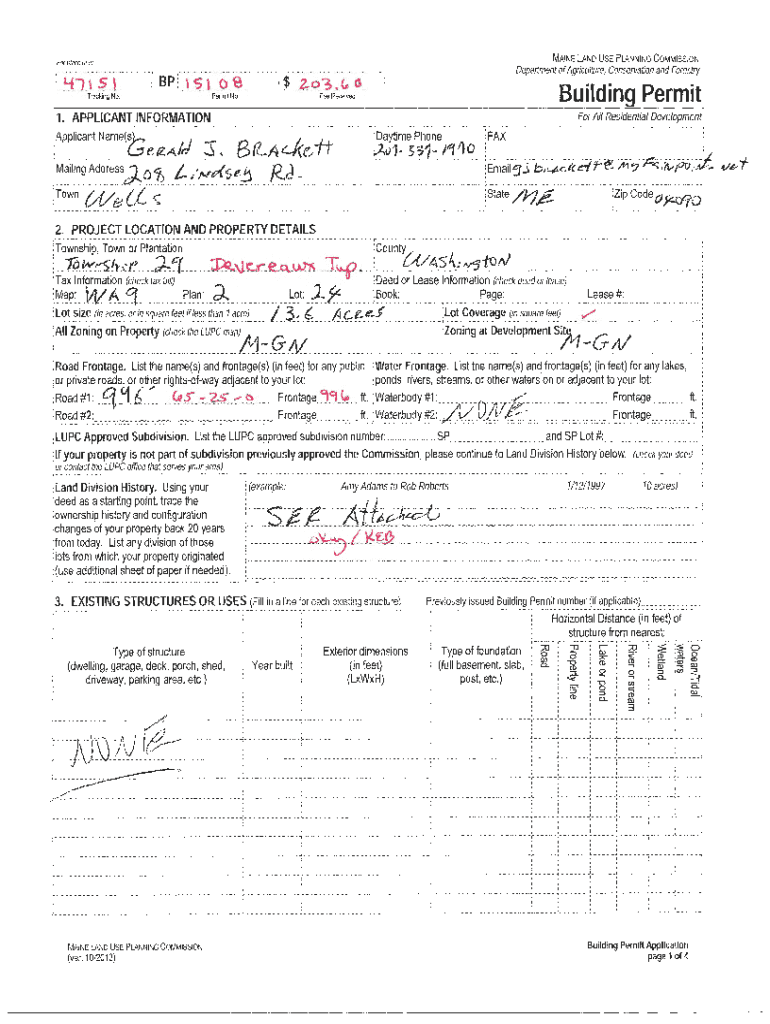 MAINE LAND USE PLANNING COMMISSION
Department of Agriculture, Conservation and Forestry
47151 BP 15108 $ 203.60
Tracking No. Permit No. Fee Received
Building Permit
For All Residential Development
1. APPLICANT INFORMATION
Applicant Name(s) Gerald J. Brackett Daytime Phone FAX
Mailing Address 208 Lindsey Rd. Email
Town Wells State ME Zip Code 04090
2. PROJECT LOCATION AND PROPERTY DETAILS
Township, Town or Plantation County
Township 29 Devereaux Twp. Washington
Tax Information (check tax bill) Deed or Lease Information (check deed or lease)
Map: WA9 Plan: 2 Lot: 24 Book: Page: Lease #:
Lot size (in acres, or in square feet if less than 1 acre) 13.6 Acres Lot Coverage (in square feet) ✓
All Zoning on Property (check the LUPC map) M-GN Zoning at Development Site M-GN
Road Frontage. List the name(s) and frontage(s) (in feet) for any public
or private roads, or other rights-of-way adjacent to your lot:
Water Frontage. List the name(s) and frontage(s) (in feet) for any lakes,
ponds, rivers, streams, or other waters on or adjacent to your lot:
Road #1: 996 65-25-0 Frontage 996 ft. Waterbody #1: Frontage ft.
Road #2: Frontage ft. Waterbody #2: NONE Frontage ft.
LUPC Approved Subdivision. List the LUPC approved subdivision number: SP and SP Lot #:
If your property is not part of subdivision previously approved the Commission, please continue to Land Division History below. (check your deed
or contact the LUPC office that serves your area)
Land Division History. Using your
deed as a starting point, trace the
ownership history and configuration
changes of your property back 20 years
from today. List any division of those
lots from which your property originated
(use additional sheet of paper if needed).
(example: Amy Adams to Rob Roberts 1/12/1997 10 acres)
SEE Attached
okay/KEB
3. EXISTING STRUCTURES OR USES (Fill in a line for each existing structure) Previously issued Building Permit number (if applicable)
Type of structure
(dwelling, garage, deck, porch, shed,
driveway, parking area, etc.)
Year built
Exterior dimensions
(in feet)
(LxWxH)
Type of foundation
(full basement, slab,
post, etc.)
Horizontal Distance (in feet) of
structure from nearest:
Road
Property line
Lake or pond
River or stream
Wetland
Ocean/Tidal
waters
NONE
MAINE LAND USE PLANNING COMMISSION
(ver. 10/2013)
Building Permit Application
page 1 of 4